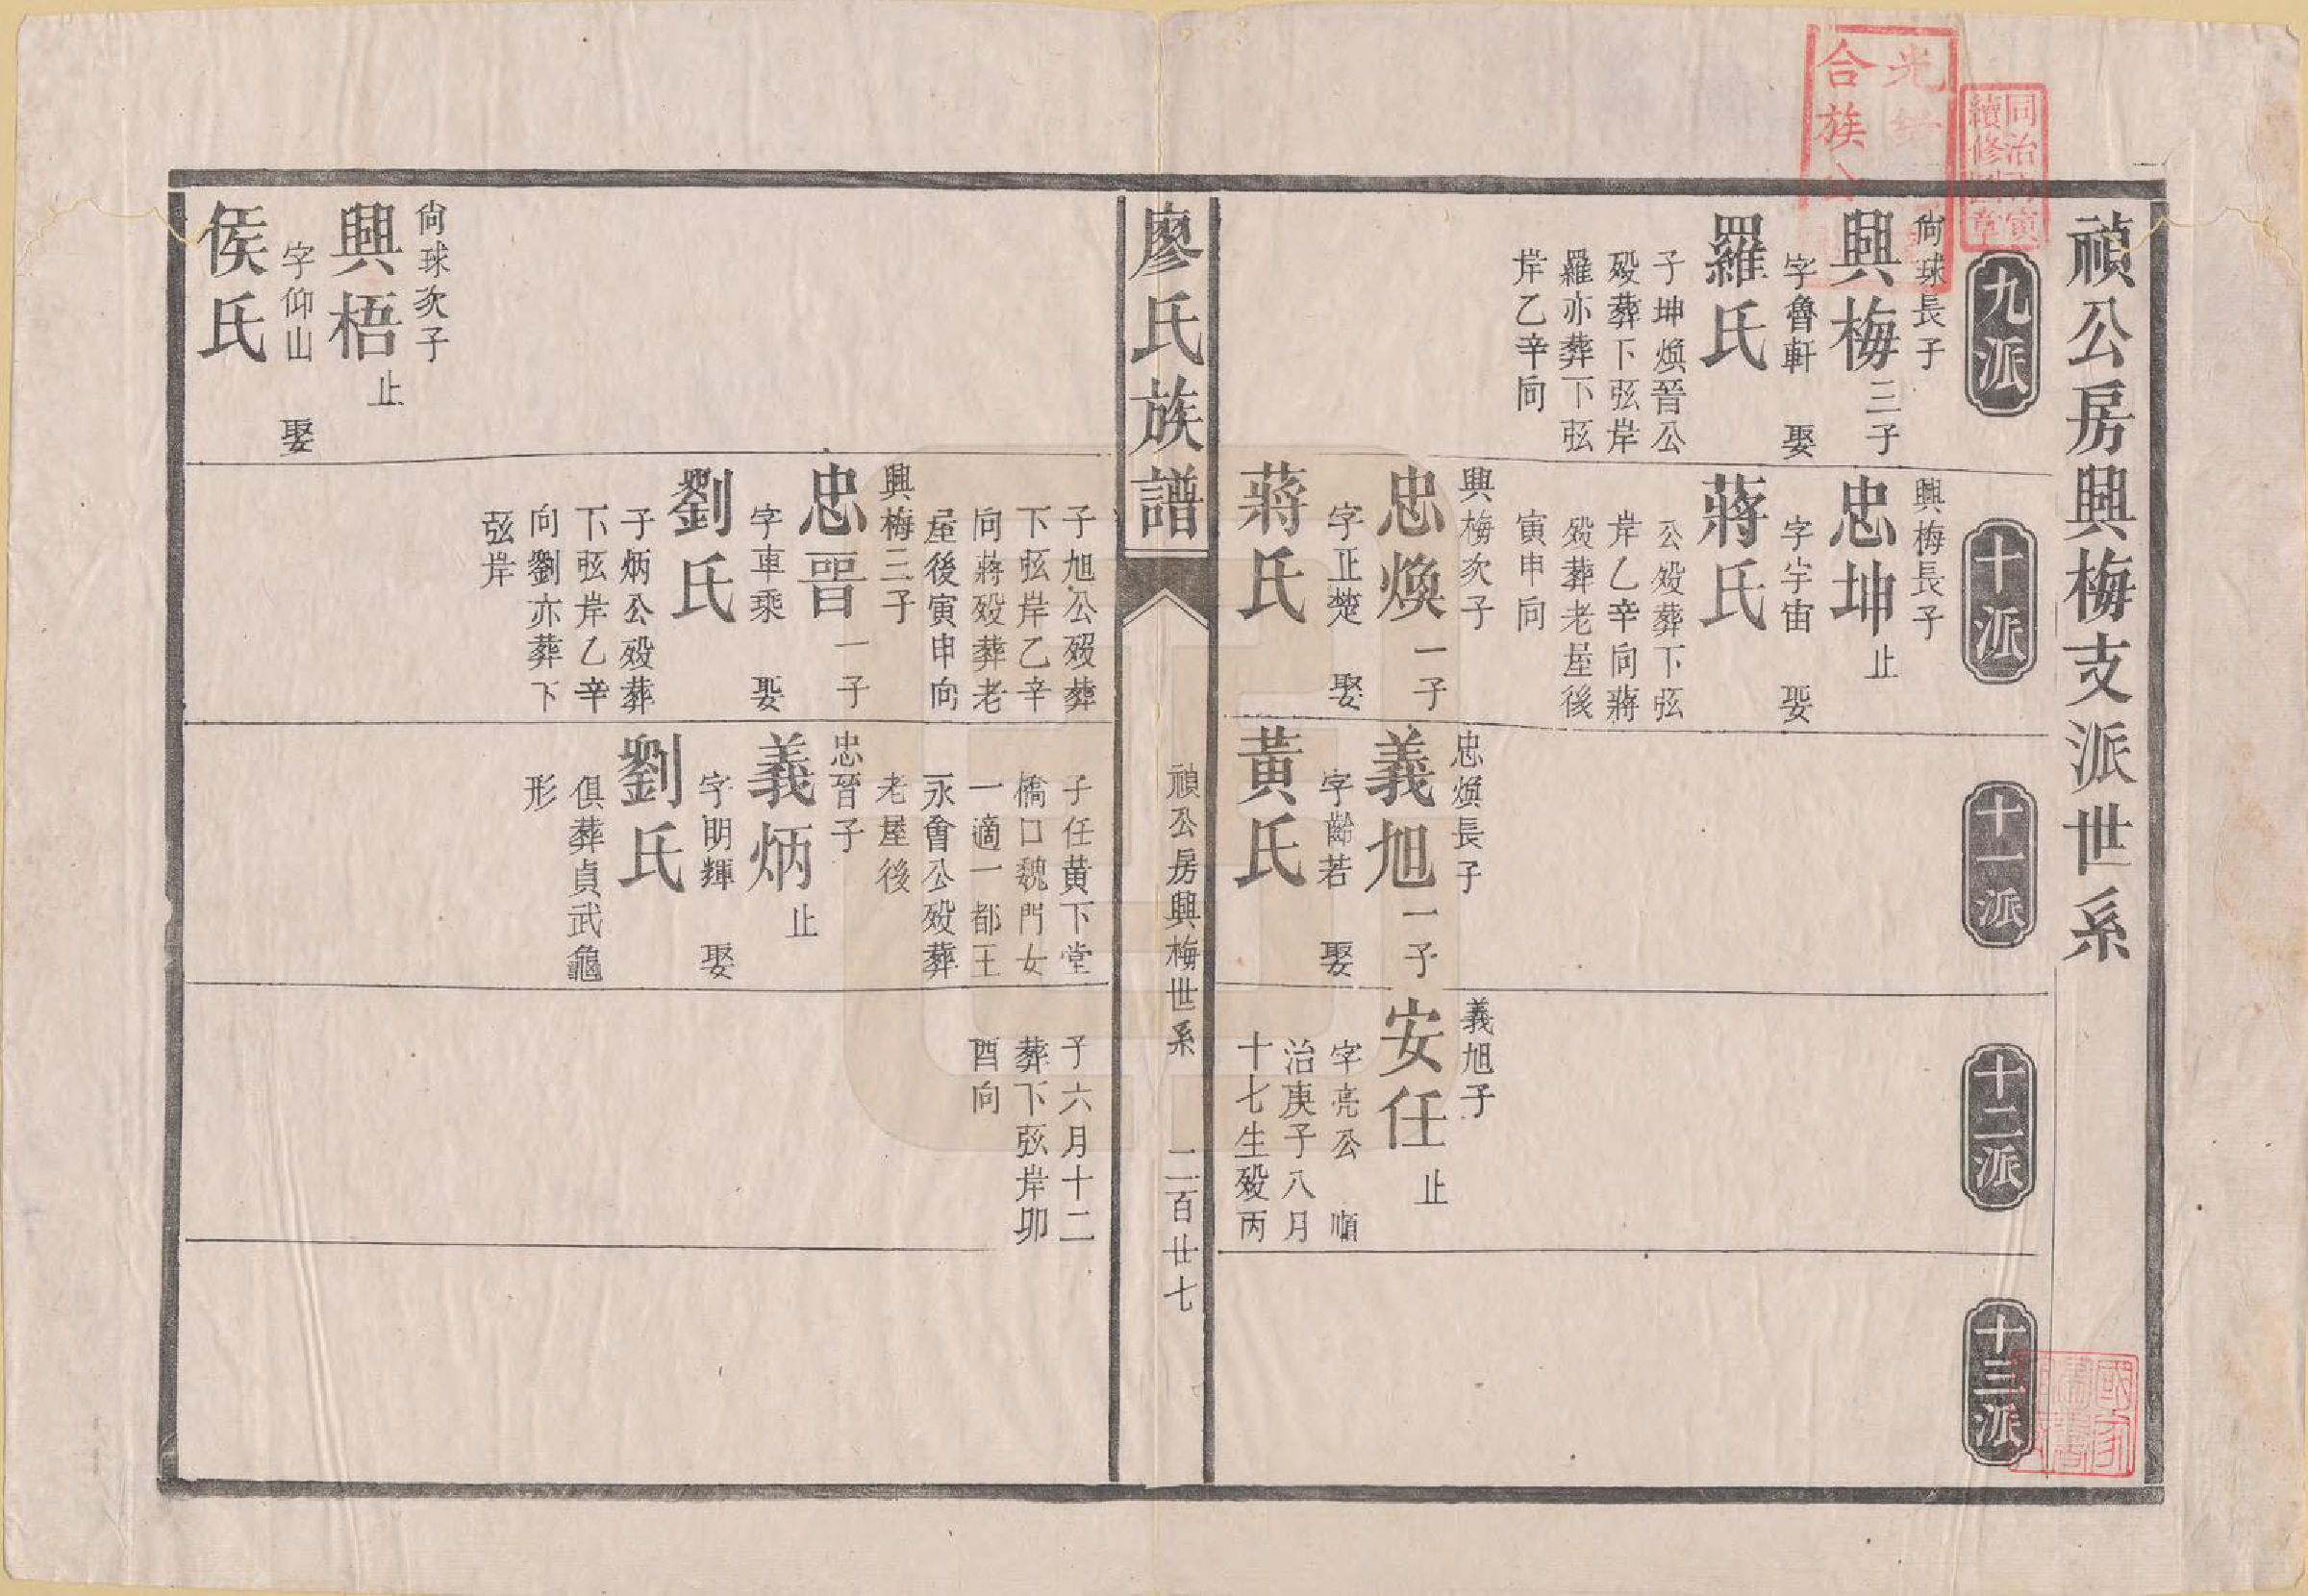 禎公房興梅支派世系
九派
尙球長子
興梅三子
字魯軒 娶
羅氏
子坤煥晉公
殁葬下弦岸
羅亦葬下弦
岸乙辛向
十派
興梅長子
忠坤止
字宇宙 娶
蔣氏
公殁葬下弦
岸乙辛向蔣
殁葬老屋後
寅申向
興梅次子
忠煥一子
字正楚 娶
蔣氏
十一派
忠煥長子
義旭一子
字齡若 娶
黃氏
十二派
義旭子
安任止
字亮公 順
治庚子八月
十七生殁丙
十三派
廖氏族譜
禎公房興梅世系 二百廿七
尙球次子
興梧止
字仰山 娶
侯氏
子旭公殁葬
下弦岸乙辛
向蔣殁葬老
屋後寅申向
興梅三子
忠晉一子
字車乘 娶
劉氏
子炳公殁葬
下弦岸乙辛
向劉亦葬下
弦岸
子任黃下堂
橋口魏門女
一適一都王
永會公殁葬
老屋後
忠晉子
義炳止
字明輝 娶
劉氏
俱葬貞武龜
形
子六月十二
葬下弦岸卯
酉向
同治寅
續修圖章
光緒
合族公
國家圖書